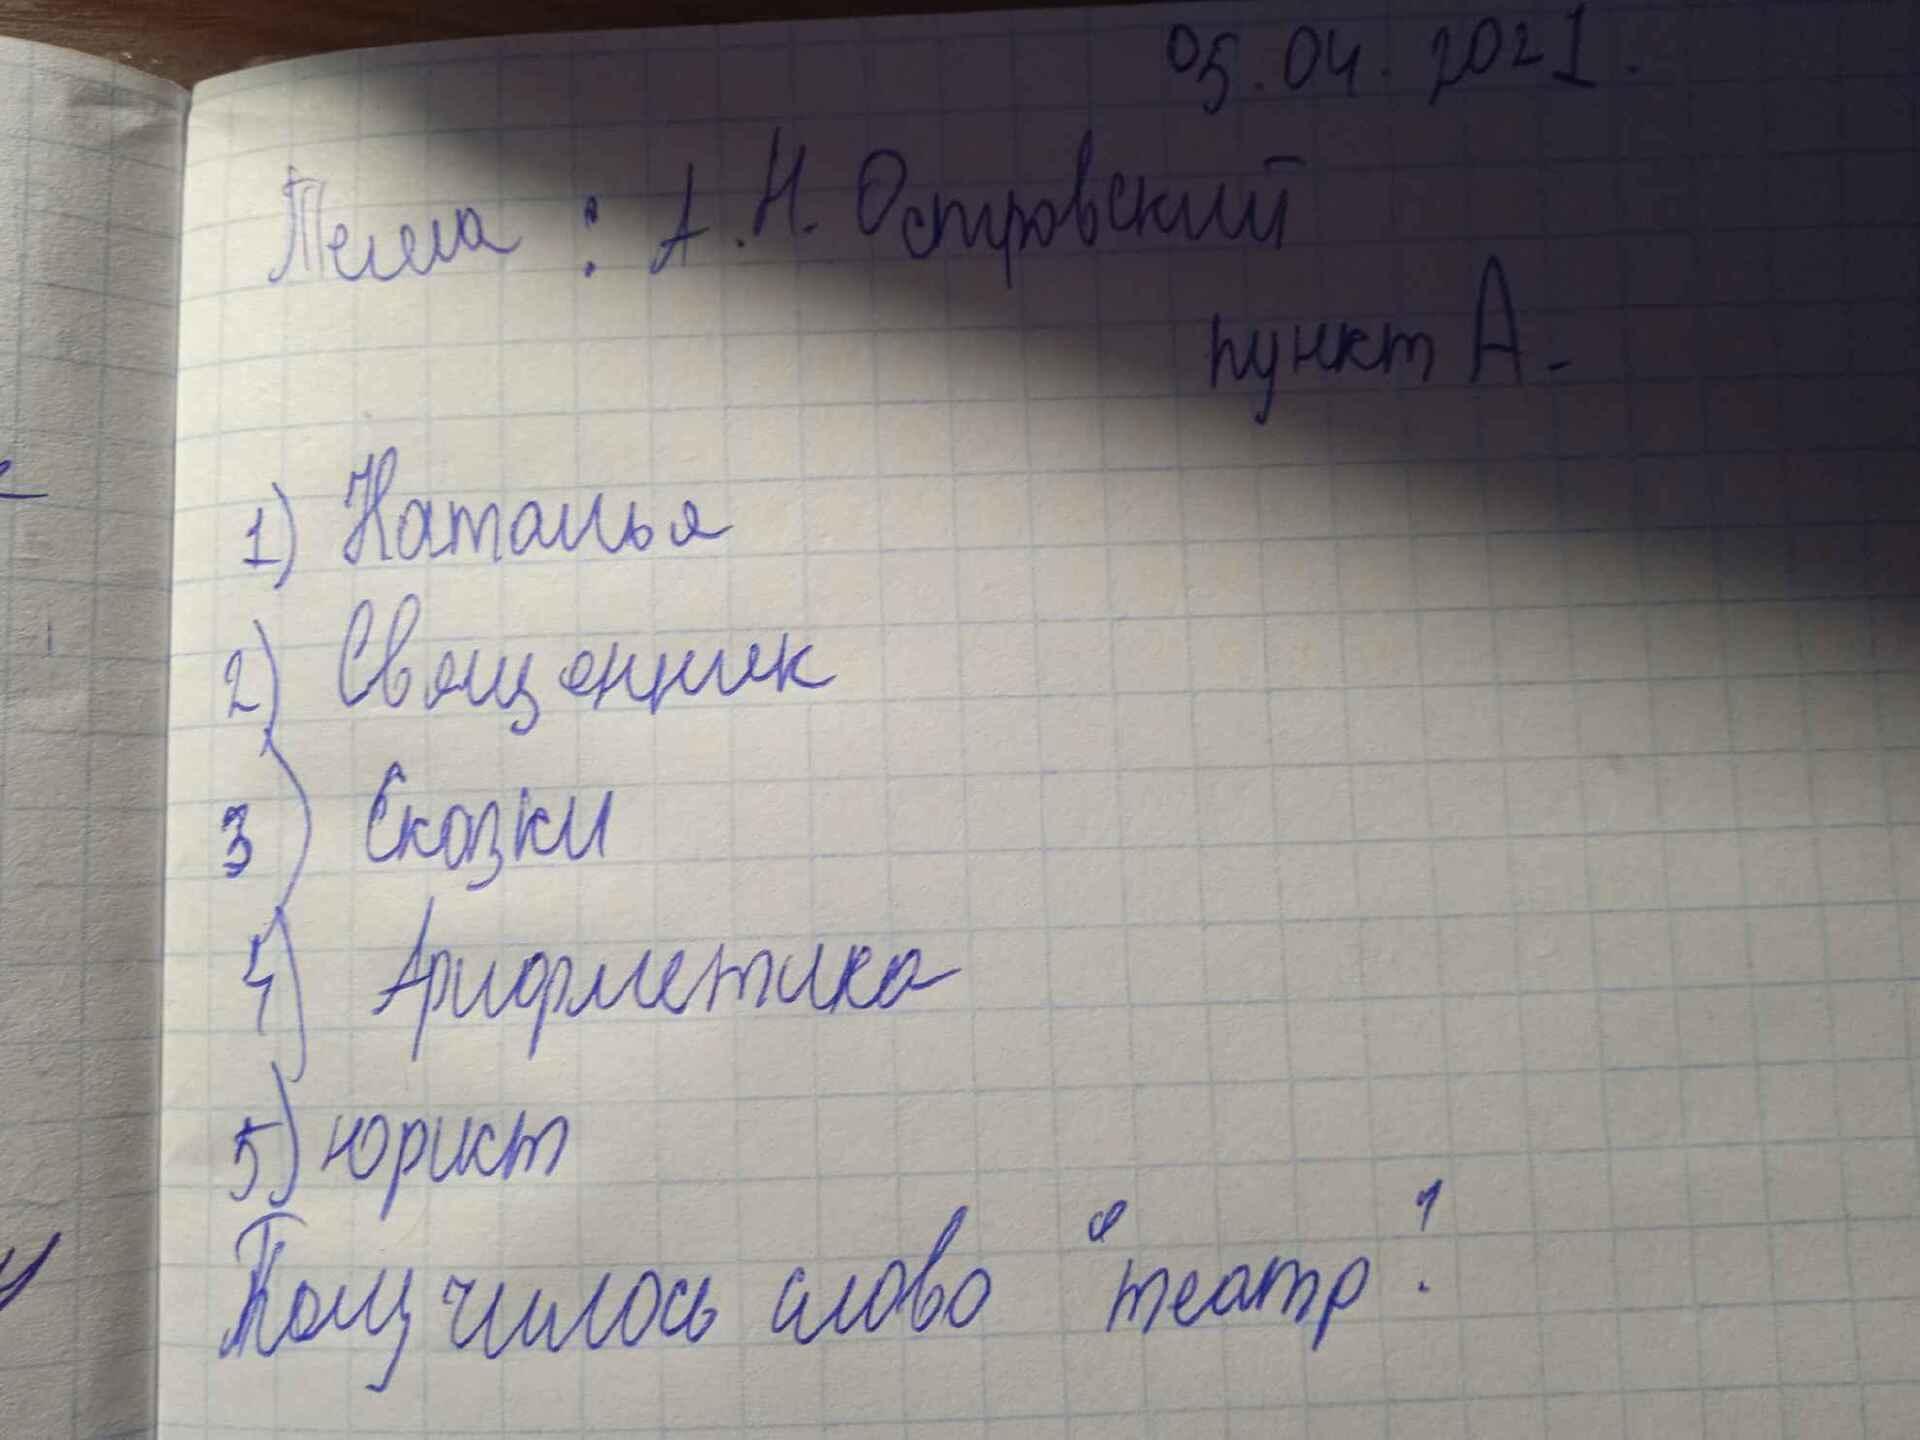 05.04.2021.
Тема : А.Н. Островский
пункт А.
1) Наталья
2) Священник
3) Сказки
4) Арифметика
5) юрист
Получилось слово "театр".